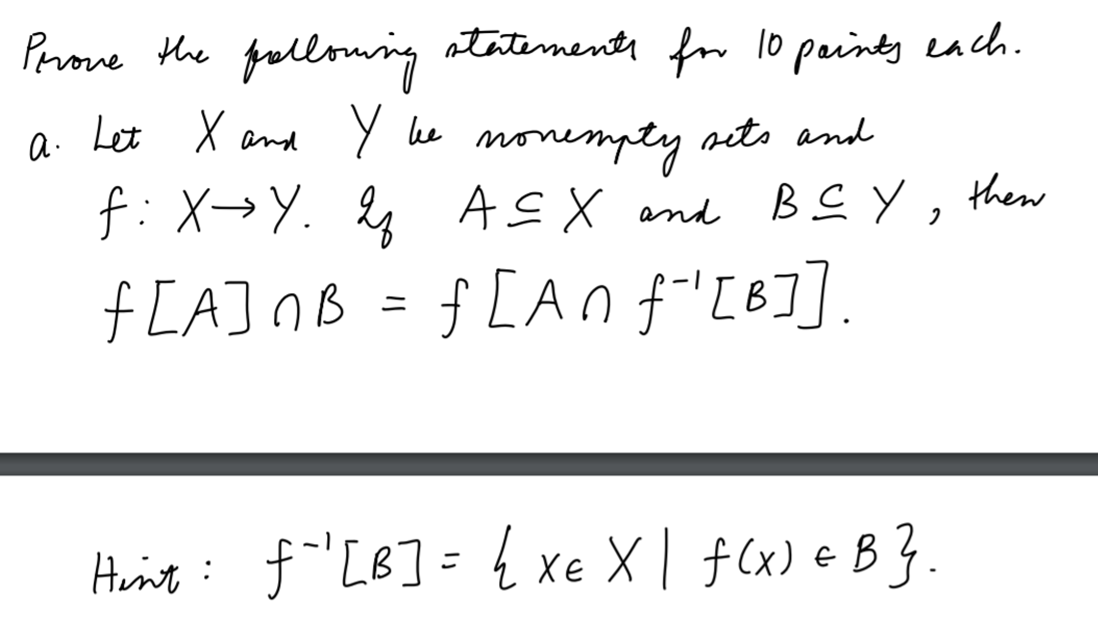 Prove the following statements for 10 points each.
a. Let X and Y be nonempty sets and
f: X→Y. If A ⊆ X and B ⊆ Y, then
f[A] ∩ B = f[A ∩ f⁻¹[B]].
Hint: f⁻¹[B] = { x ∈ X | f(x) ∈ B }.